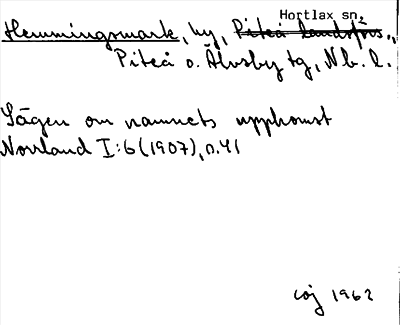 Hortlax sn,
Hemmingsmark, by, Piteå landsförs.,
Piteå o. Älvsby tg, Nb. l.
Sägen om namnets uppkomst
Norrland I:6 (1907), s. 41
1962